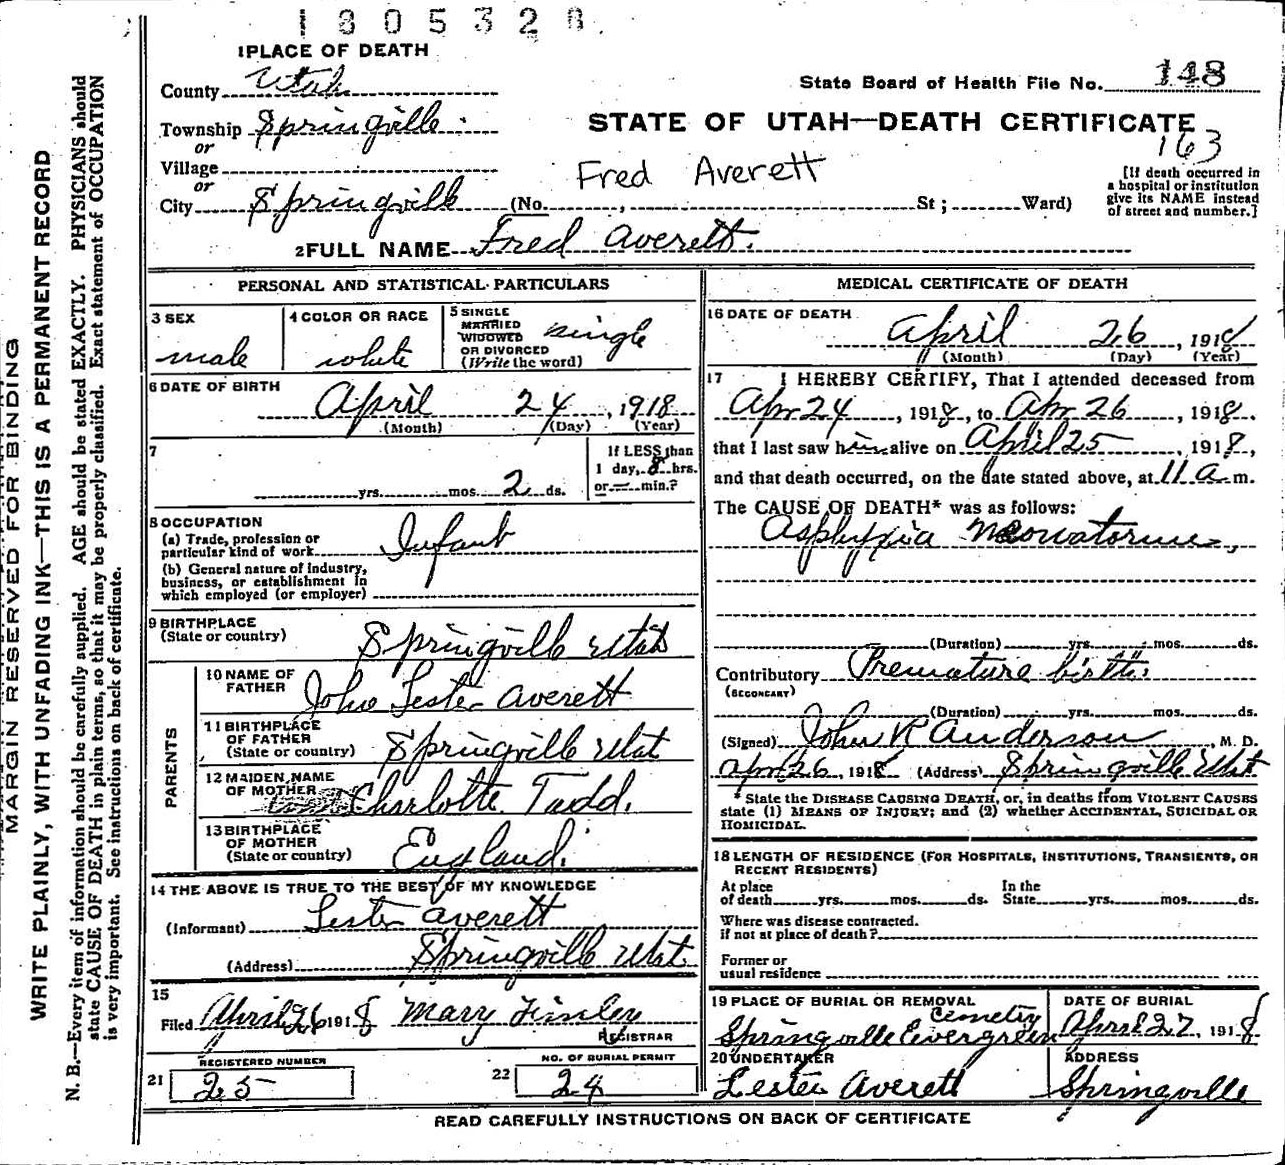 1805328.
1 PLACE OF DEATH
County Utah
Township Springville
or
Village
or
City Springville (No. , St ; Ward)
State Board of Health File No. 148
STATE OF UTAH—DEATH CERTIFICATE
163
Fred Averett
[If death occurred in
a hospital or institution
give its NAME instead
of street and number.]
2 FULL NAME Fred Averett.
MARGIN RESERVED FOR BINDING
WRITE PLAINLY, WITH UNFADING INK—THIS IS A PERMANENT RECORD
N. B.—Every item of information should be carefully supplied. AGE should be stated EXACTLY. PHYSICIANS should
state CAUSE OF DEATH in plain terms, so that it may be properly classified. Exact statement of OCCUPATION
is very important. See instructions on back of certificate.
PERSONAL AND STATISTICAL PARTICULARS
3 SEX
male
4 COLOR OR RACE
white
5 SINGLE
MARRIED
WIDOWED
OR DIVORCED
(Write the word)
single
6 DATE OF BIRTH
April 24, 1918
(Month) (Day) (Year)
7
yrs. mos. 2 ds.
If LESS than
1 day, 8 hrs.
or — min.?
8 OCCUPATION
(a) Trade, profession or
particular kind of work Infant
(b) General nature of industry,
business, or establishment in
which employed (or employer)
9 BIRTHPLACE
(State or country) Springville Utah
PARENTS
10 NAME OF
FATHER John Lester Averett
11 BIRTHPLACE
OF FATHER
(State or country) Springville Utah
12 MAIDEN NAME
OF MOTHER Charlotte Tudd.
13 BIRTHPLACE
OF MOTHER
(State or country) England.
14 THE ABOVE IS TRUE TO THE BEST OF MY KNOWLEDGE
(Informant) Lester Averett
(Address) Springville Utah
15
Filed April 26 1918 Mary Finley
REGISTRAR
REGISTERED NUMBER
21 25
NO. OF BURIAL PERMIT
22 24
MEDICAL CERTIFICATE OF DEATH
16 DATE OF DEATH
April 26, 1918
(Month) (Day) (Year)
17 I HEREBY CERTIFY, That I attended deceased from
Apr 24, 1918, to Apr 26, 1918.
that I last saw him alive on April 25, 1918,
and that death occurred, on the date stated above, at 11 a. m.
The CAUSE OF DEATH* was as follows:
Asphyxia Neonatorum,
(Duration) yrs. mos. ds.
Contributory Premature birth.
(SECONDARY)
(Duration) yrs. mos. ds.
(Signed) John R Anderson, M. D.
Apr 26, 1918 (Address) Springville Utah
*State the DISEASE CAUSING DEATH, or, in deaths from VIOLENT CAUSES
state (1) MEANS OF INJURY; and (2) whether ACCIDENTAL, SUICIDAL OR
HOMICIDAL.
18 LENGTH OF RESIDENCE (FOR HOSPITALS, INSTITUTIONS, TRANSIENTS, OR
RECENT RESIDENTS)
At place
of death yrs. mos. ds.
In the
State yrs. mos. ds.
Where was disease contracted.
if not at place of death?
Former or
usual residence
19 PLACE OF BURIAL OR REMOVAL
Springville Evergreen Cemetry
DATE OF BURIAL
April 27, 1918
20 UNDERTAKER
Lester Averett
ADDRESS
Springville
READ CAREFULLY INSTRUCTIONS ON BACK OF CERTIFICATE